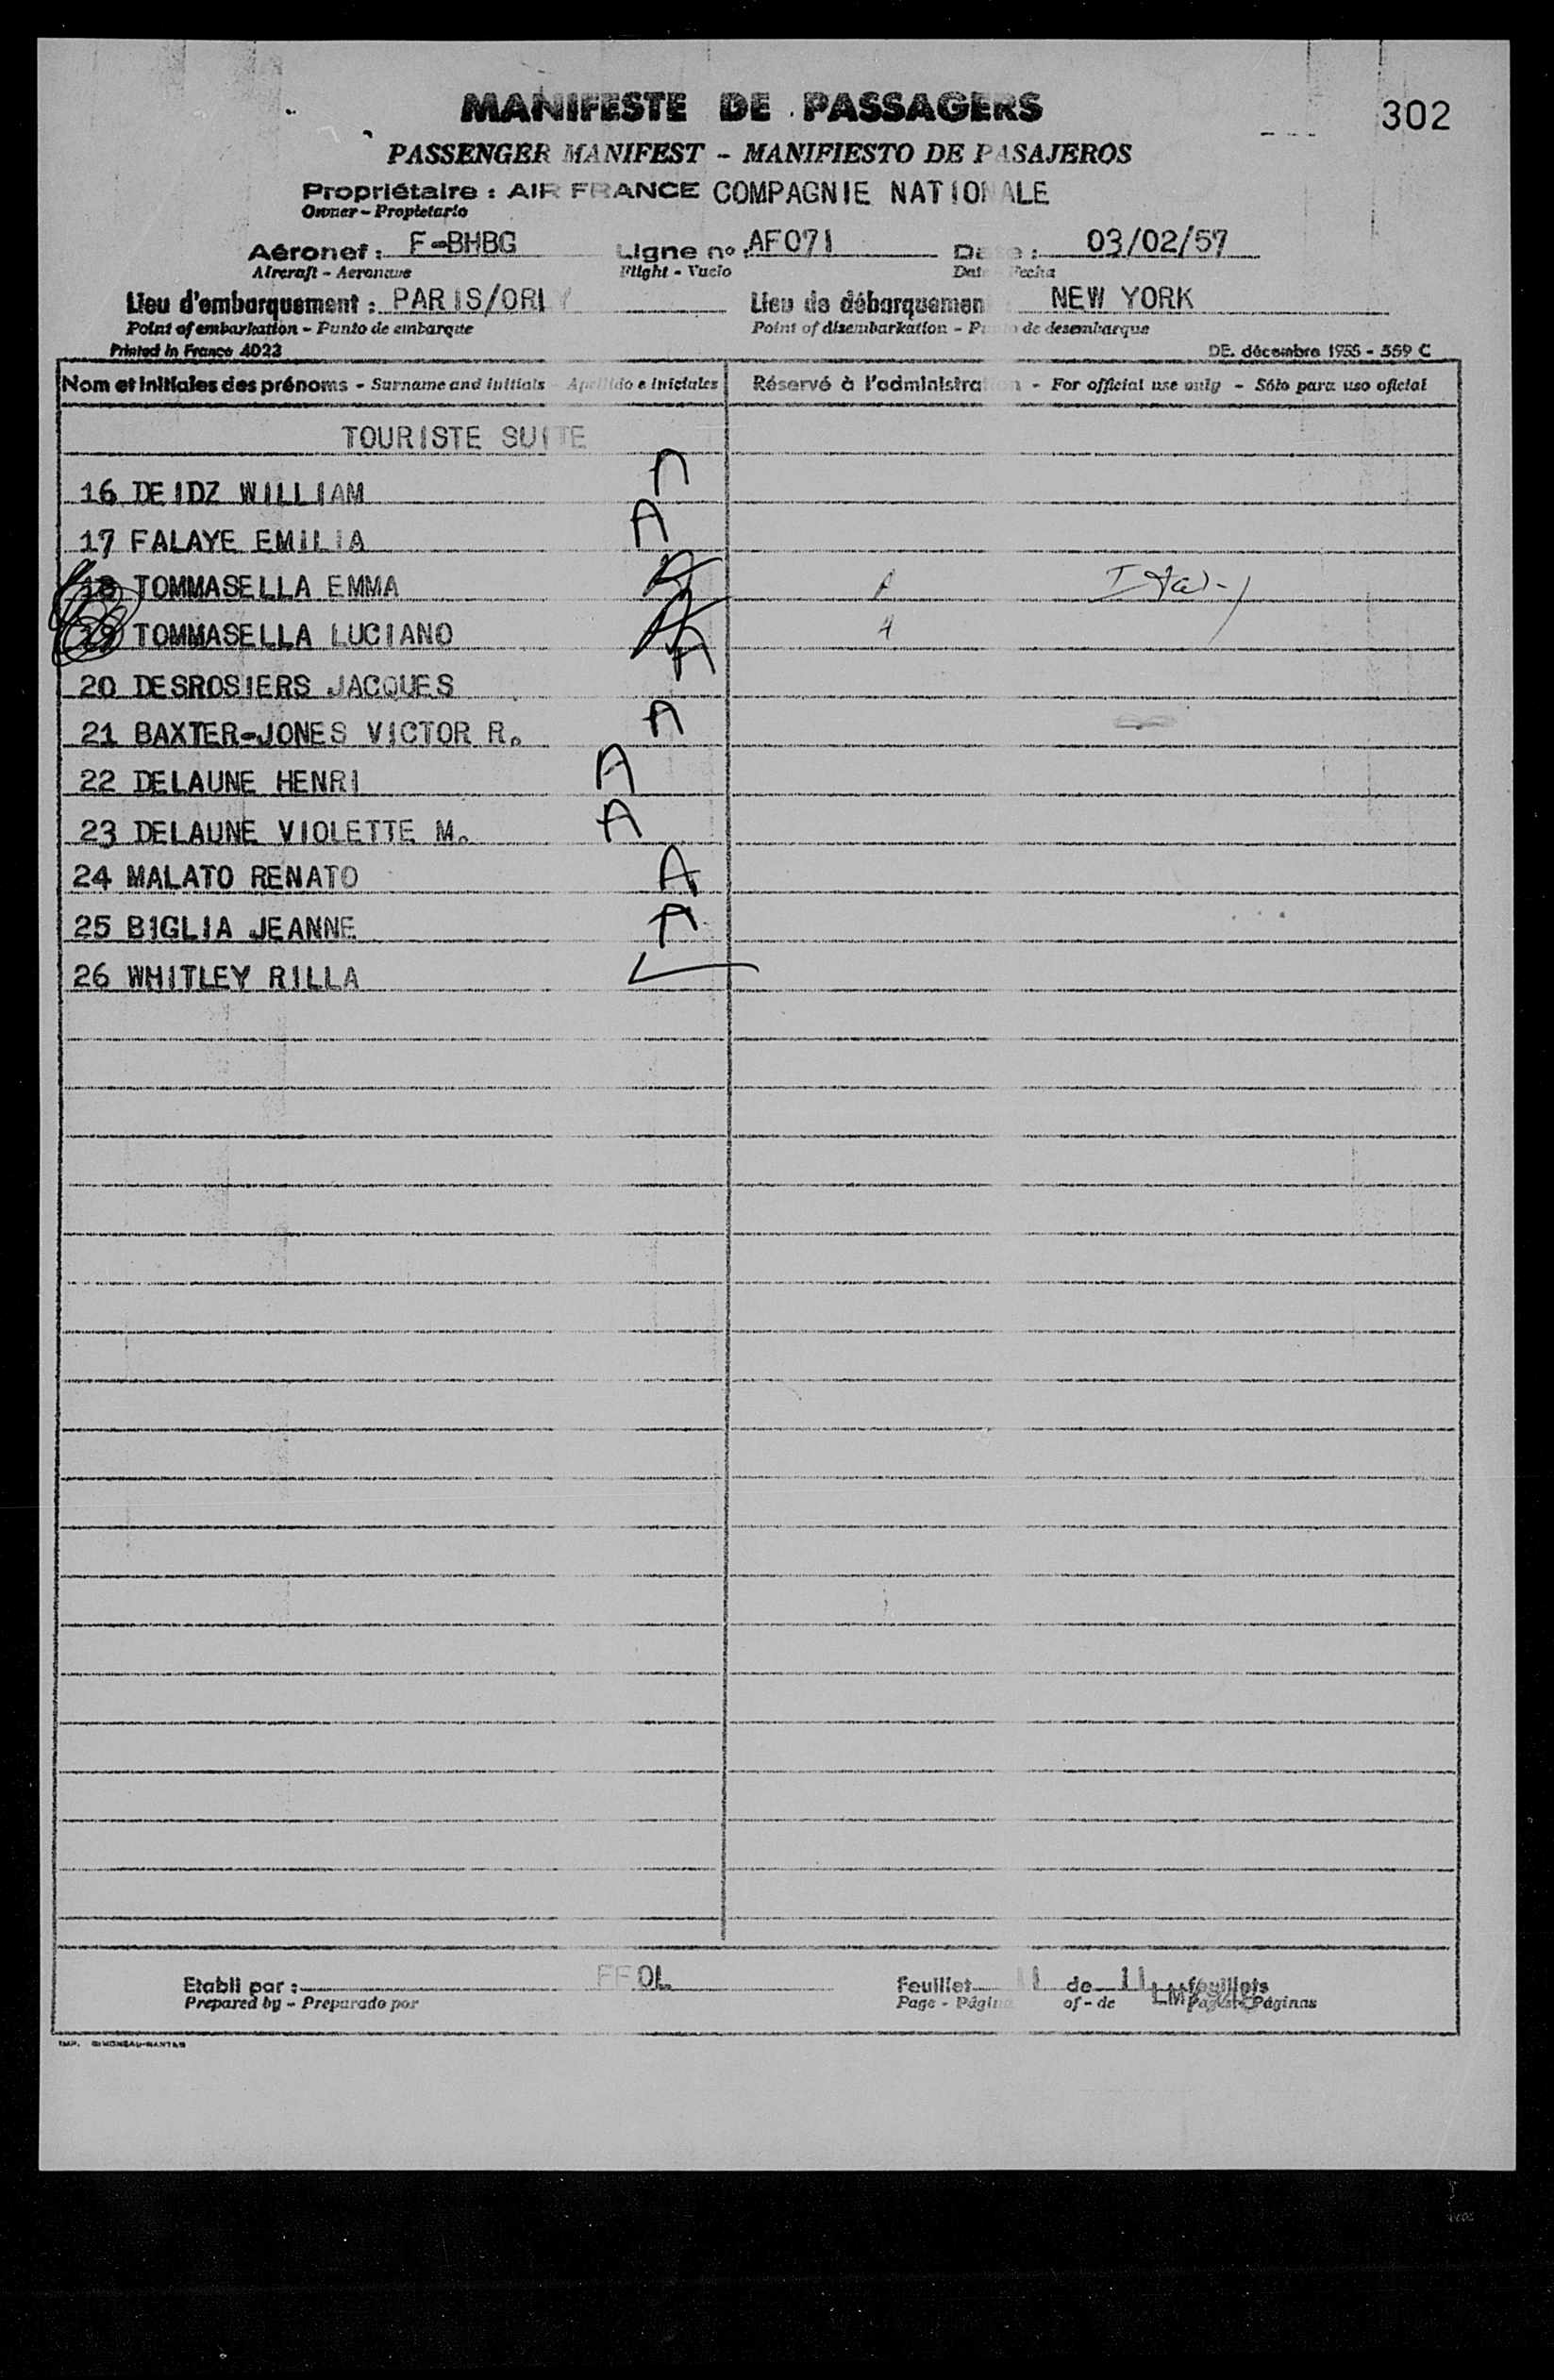 MANIFESTE DE PASSAGERS
302
PASSENGER MANIFEST - MANIFIESTO DE PASAJEROS
Propriétaire : AIR FRANCE COMPAGNIE NATIONALE
Owner - Propietario
Aéronef : F-BHBG Ligne no : AF071 Date : 03/02/57
Aircraft - Aeronave Flight - Vuelo Date Fecha
Lieu d'embarquement : PARIS/ORLY Lieu de débarquemen NEW YORK
Point of embarkation - Punto de embarque Point of disembarkation - Punto de desembarque
Printed in France 4023 DE. décembre 1955 - 559 C
Nom et initiales des prénoms - Surname and initials - Apellido e iniciales Réservé à l'administration - For official use only - Sólo para uso oficial
TOURISTE SUITE
16 DEIDZ WILLIAM A
17 FALAYE EMILIA A
18 TOMMASELLA EMMA A A Italy
19 TOMMASELLA LUCIANO A A
20 DESROSIERS JACQUES A
21 BAXTER-JONES VICTOR R. A
22 DELAUNE HENRI A
23 DELAUNE VIOLETTE M. A
24 MALATO RENATO A
25 BIGLIA JEANNE A
26 WHITLEY RILLA
Etabli par : FFOL Feuillet 11 de 11 feuillets
Prepared by - Preparado por Page - Página of - de Páginas
IMP. SIMONEAU-NANTES